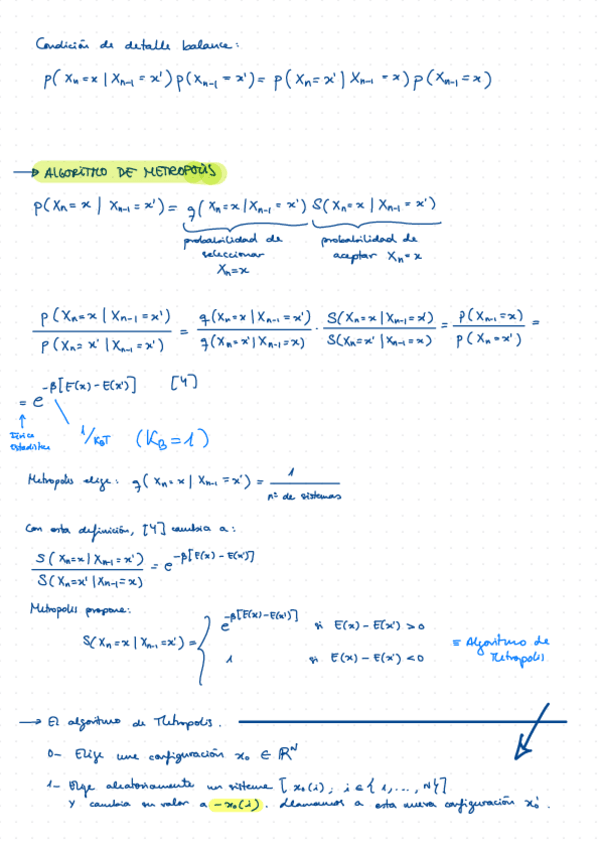 Condición de detalle balance:
p(Xn=x | Xn-1 = x') p(Xn-1 = x') = p(Xn=x' | Xn-1 = x) p(Xn-1 = x)
→ ALGORITMO DE METROPOLIS
p(Xn=x | Xn-1 = x') = g(Xn=x | Xn-1 = x') S(Xn=x | Xn-1 = x')
probabilidad de seleccionar Xn=x
probabilidad de aceptar Xn=x
p(Xn=x | Xn-1=x') / p(Xn=x' | Xn-1=x') = g(Xn=x | Xn-1=x') / g(Xn=x' | Xn-1=x) · S(Xn=x | Xn-1=x') / S(Xn=x' | Xn-1=x) = p(Xn-1=x) / p(Xn=x') =
= e^-β[E(x) - E(x')] [4]
↑ Física estadística
1/KBT (KB = 1)
Metropolis elige: g(Xn=x | Xn-1 = x') = 1 / nº de sistemas
Con esta definición, [4] cambia a:
S(Xn=x | Xn-1=x') / S(Xn=x' | Xn-1=x) = e^-β[E(x) - E(x')]
Metropolis propone:
S(Xn=x | Xn-1=x') = { e^-β[E(x)-E(x')] si E(x) - E(x') > 0
1 si E(x) - E(x') < 0
= Algoritmo de Metropolis
→ El algoritmo de Metropolis.
0- Elige una configuración x0 ∈ ℝ^N
1- Elige aleatoriamente un sistema [x0(i), i ∈ {1, ..., N}]
y cambia su valor a -x0(i). Llamamos a esta nueva configuración x0'.